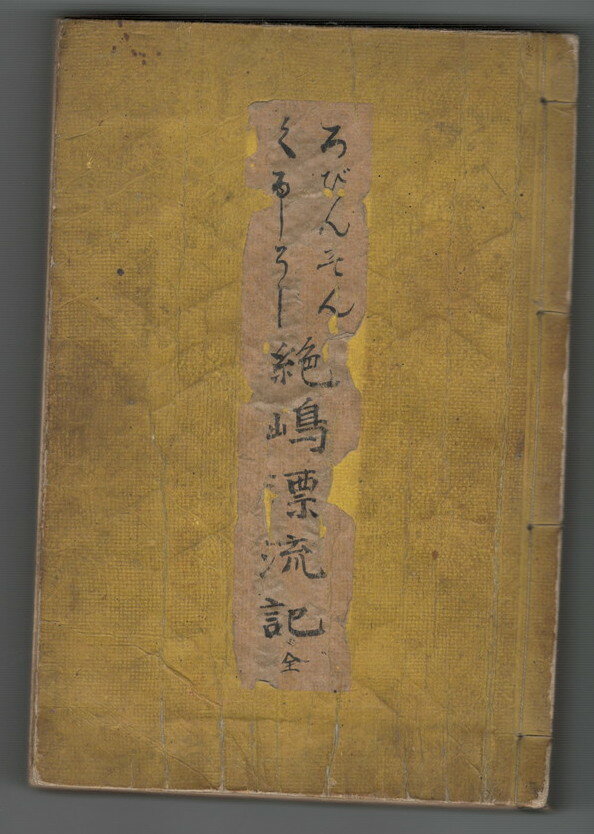 ろびんそん
くるーそー
絶嶋漂流記
全